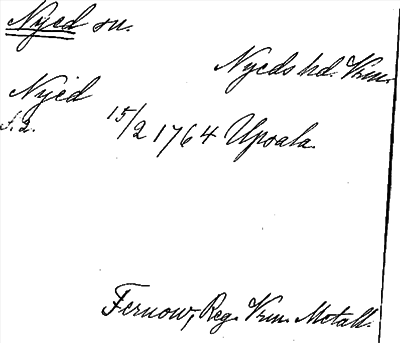 Nyed sn.
Nyeds hd. Vrm.
Nyed
f.a. 15/2 1764 Upsala.
Fernow, Reg. Vrm. Metall.